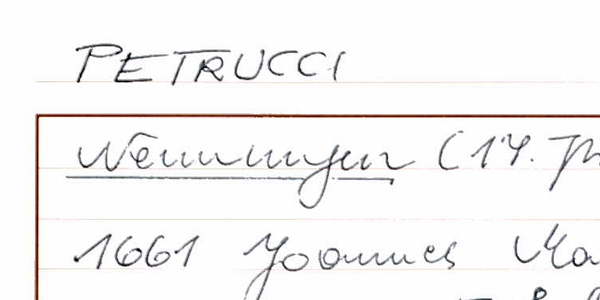 PETRUCCI
Wemmingen (17. Jh
1661 Joannes Ma